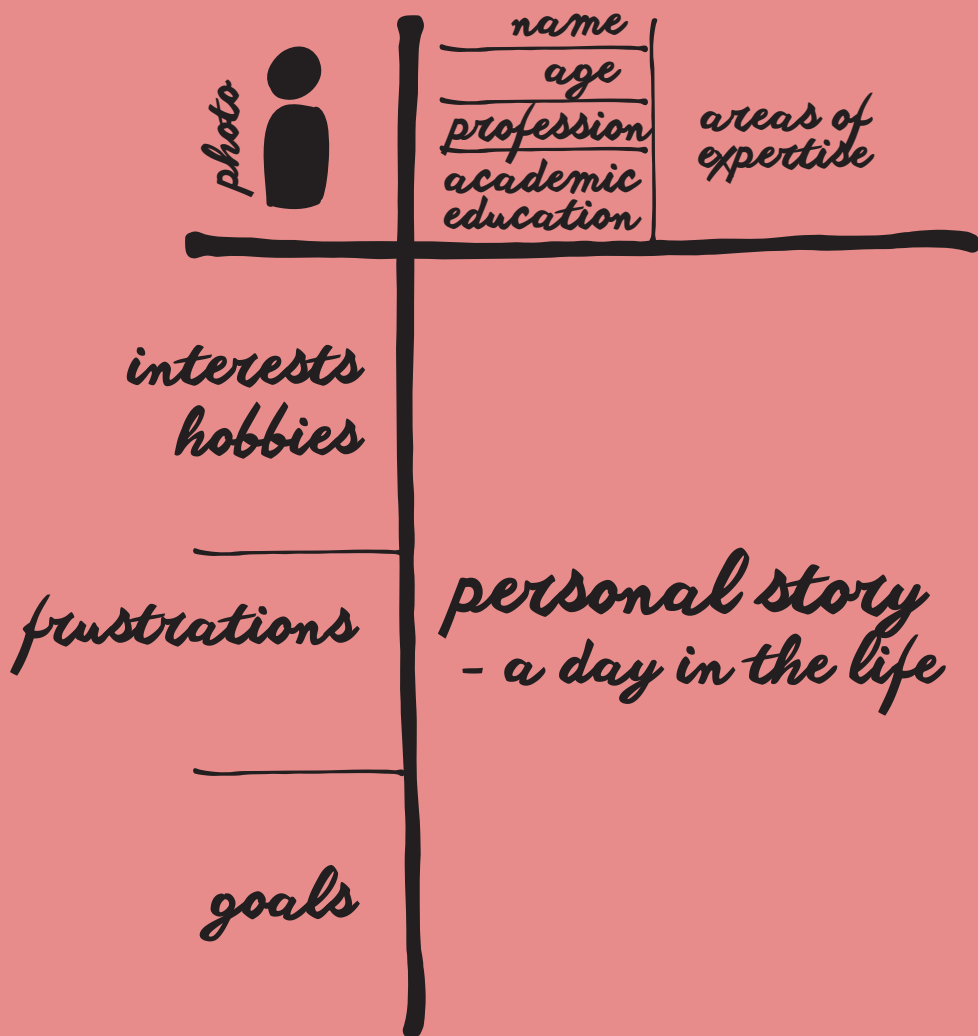 photo
name
age
profession
academic
education
areas of
expertise
interests
hobbies
frustrations
goals
personal story
- a day in the life